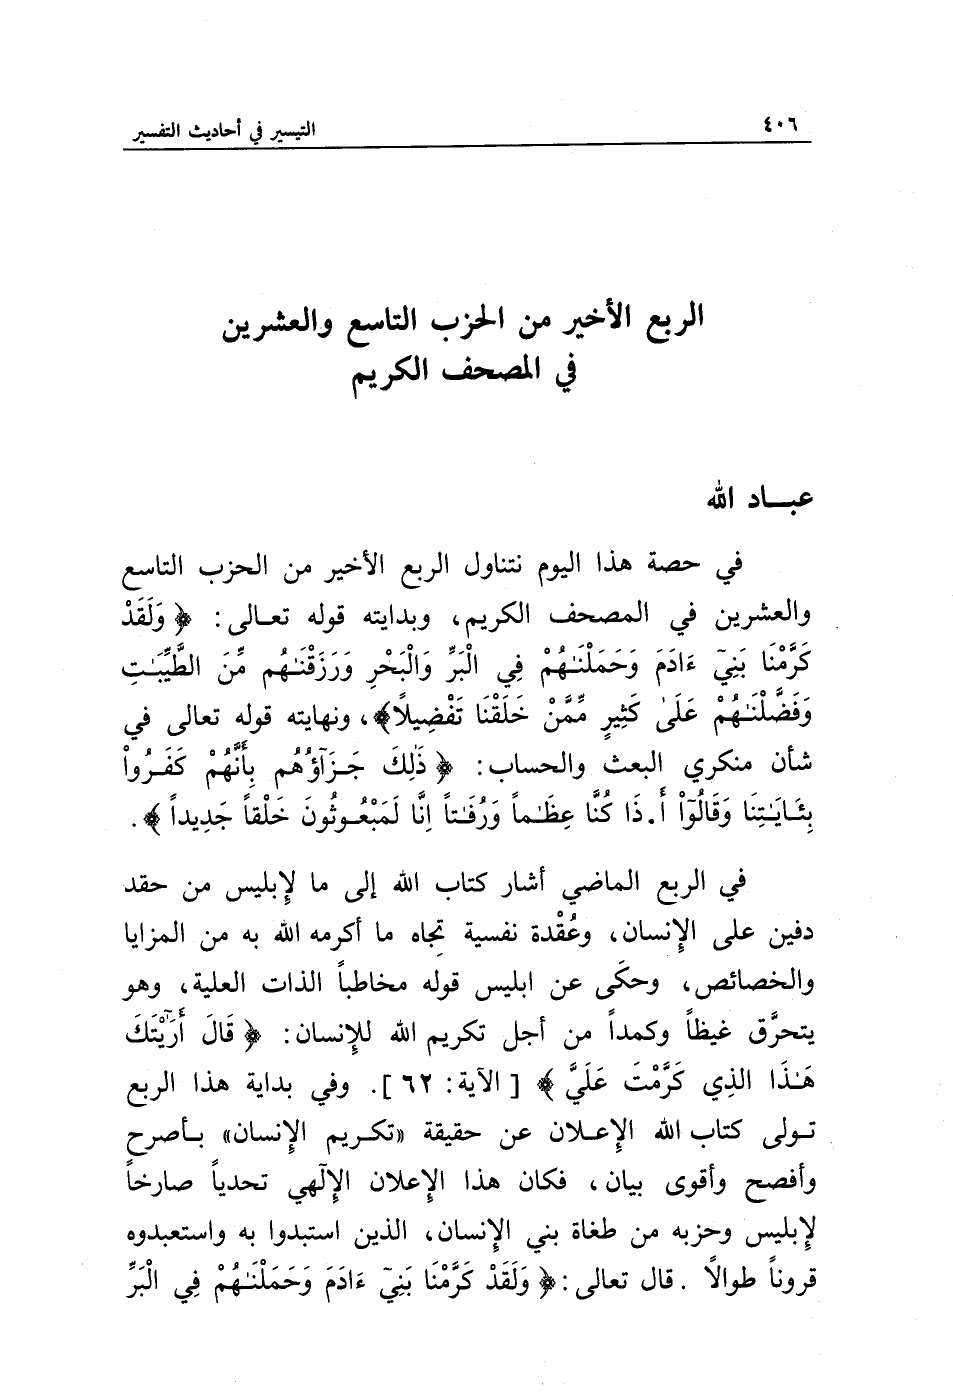 ٤٠٦ التيسير في أحاديث التفسير
الربع الأخير من الحزب التاسع والعشرين
في المصحف الكريم
عبـــاد الله
في حصة هذا اليوم نتناول الربع الأخير من الحزب التاسع
والعشرين في المصحف الكريم، وبدايته قوله تعـالى: ﴿وَلَقَدْ
كَرَّمْنَا بَنِيٓ ءَادَمَ وَحَمَلْنَـٰهُمْ فِي الْبَرِّ وَالْبَحْرِ وَرَزَقْنَـٰهُم مِّنَ الطَّيِّبَـٰتِ
وَفَضَّلْنَـٰهُمْ عَلَىٰ كَثِيرٍ مِّمَّنْ خَلَقْنَا تَفْضِيلاً﴾، ونهايته قوله تعالى في
شأن منكري البعث والحساب: ﴿ذَٰلِكَ جَـزَآؤُهُم بِأَنَّهُمْ كَفَـرُواْ
بِئَـايَـٰتِنَا وَقَالُوٓاْ أَ.ذَا كُنَّا عِظَـٰماً وَرُفَـٰتاً اِنَّا لَمَبْعُـوثُونَ خَلْقاً جَدِيداً﴾.
في الربع الماضي أشار كتاب الله إلى ما لإبليس من حقد
دفين على الإنسان، وعُقْدة نفسية تجاه ما أكرمه الله به من المزايا
والخصائص، وحكَى عن ابليس قوله مخاطباً الذات العلية، وهو
يتحرَّق غيظاً وكمداً من أجل تكريم الله للإنسان: ﴿قَالَ أَرَٰٓيْتَكَ
هَـٰذَا الذِي كَرَّمْتَ عَلَيَّ﴾ [الآية: ٦٢]. وفي بداية هذا الربع
تـولى كتاب الله الإعـلان عن حقيقة «تكـريم الإنسان» بـأصرح
وأفصح وأقوى بيان، فكان هذا الإعلان الإلٰهي تحدياً صارخاً
لإبليس وحزبه من طغاة بني الإنسان، الذين استبدوا به واستعبدوه
قروناً طوالاً. قال تعالى: ﴿وَلَقَدْ كَرَّمْنَا بَنِيٓ ءَادَمَ وَحَمَلْنَـٰهُمْ فِي الْبَرِّ